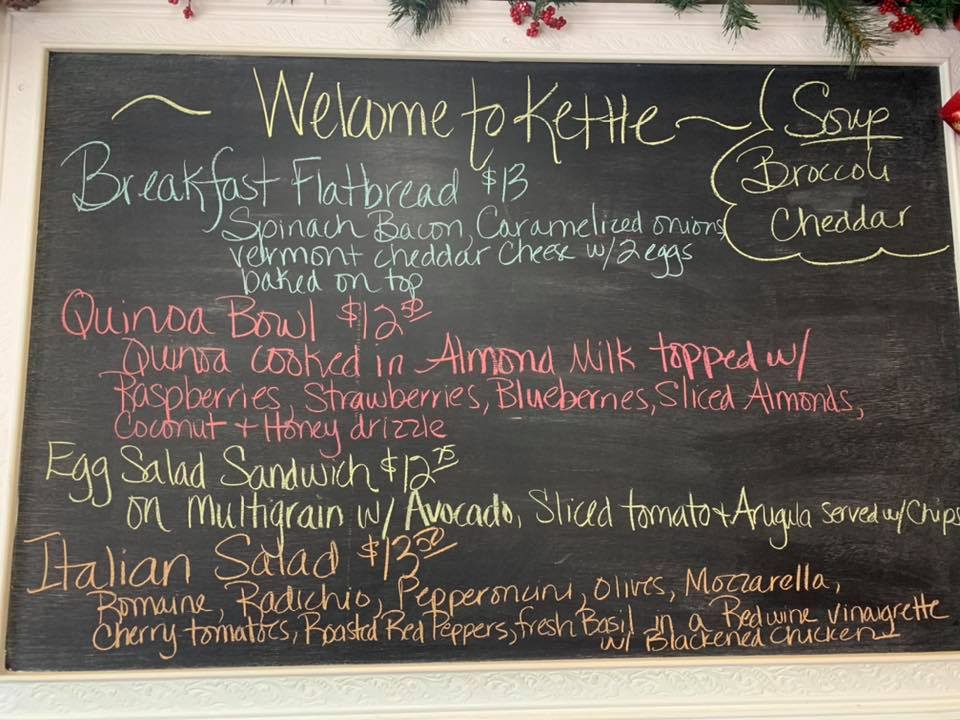 ~ Welcome to Kettle ~
Soup
Broccoli
Cheddar
Breakfast Flatbread $13
Spinach Bacon, Caramelized onions
vermont cheddar cheese w/2 eggs
baked on top
Quinoa Bowl $12 50
Quinoa cooked in Almond Milk topped w/
Raspberries, Strawberries, Blueberries, Sliced Almonds,
Coconut + Honey drizzle
Egg Salad Sandwich $12 75
on Multigrain w/ Avocado, Sliced tomato + Arugula served w/ Chips
Italian Salad $13 50
Romaine, Radichio, Pepperoncini, Olives, Mozzarella,
Cherry tomatoes, Roasted Red Peppers, fresh Basil in a Redwine vinaigrette
w/ Blackened Chicken